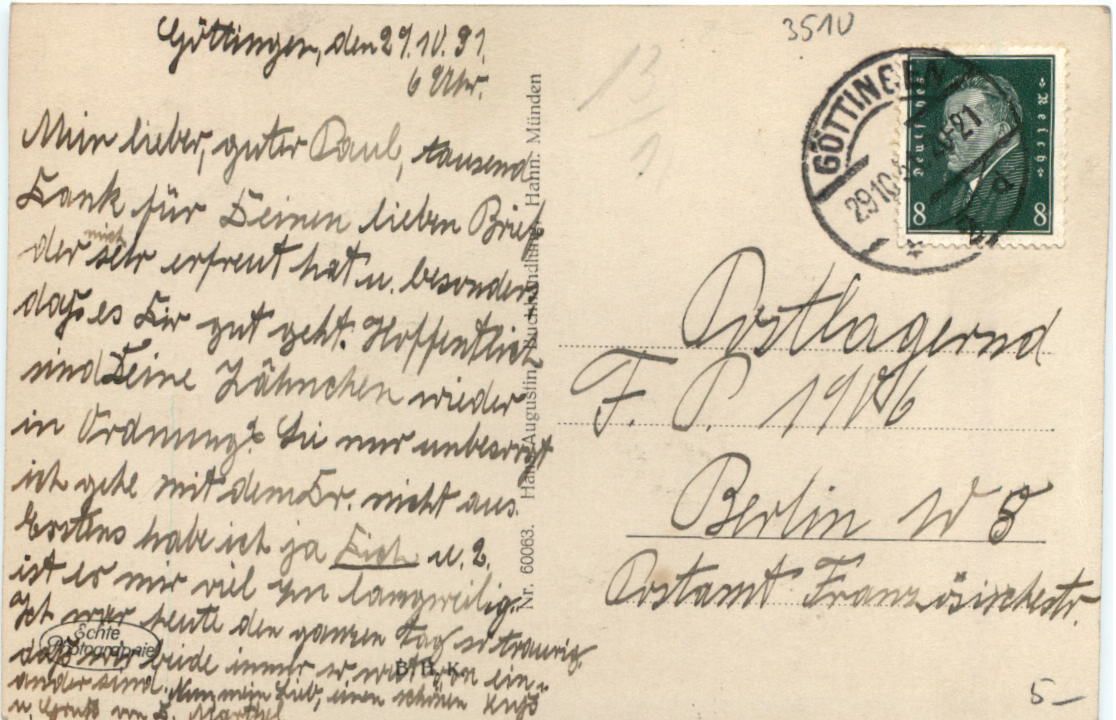 Göttingen, den 29.10.31.
6 Uhr.
Mein lieber, guter Paul, tausend
Dank für Deinen lieben Brief
der mich sehr erfreut hat u. besonders,
daß es Dir gut geht. Hoffentlich
sind Deine Zähnchen wieder
in Ordnung? Sei nur unbesorgt
ich gehe mit dem Dr. nicht aus.
Erstens habe ich ja Dich u. 2.
ist es mir viel zu langweilig.
Ich war heute den ganzen Tag so traurig,
daß wir beide immer so weit von ein-
ander sind. Nun mein Lieb, einen schönen Kuß
u. Gruß von D.
Echte
Photographie
B. H. K.
Nr. 60063. Hans Augustin, Buchhandlung, Hann. Münden
3510
13
1
GÖTTINGEN
29.10.31 20-21
Deutsches Reich
8 8
Postlagernd
F. P. 1906
Berlin W 8
Postamt Französischestr.
5-